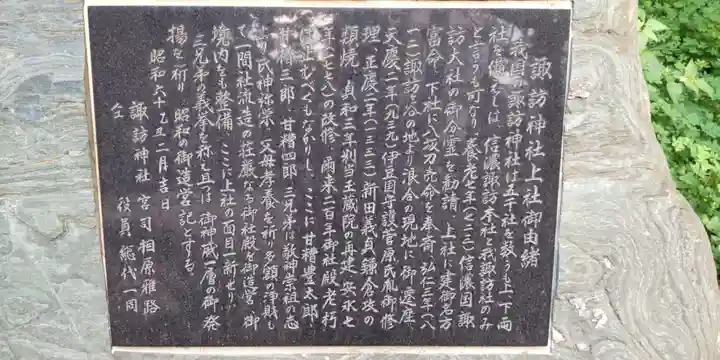 諏訪神社上社御由緒
我国の諏訪神社は五千社を数うも上下両
社を備えしは、信濃諏訪本社と我諏訪社のみ
と言うも可なり。養老七年(七二三)信濃国諏
訪大社の御分霊を勧請、上社に建御名方
富命、下社に八坂刀売命を奉斎、弘仁三年(八
一二)諏訪ヶ谷の地より浪合の現地に御遷座、
天慶二年(九三九)伊豆国守護菅原氏胤御修
理、正慶二年(一三三三)新田義貞鎌倉攻の
類焼、貞和三年別当玉蔵院の再建、安永七
年(一七七八)の改修、爾来二百年御社殿老朽
止むべくもなかりし、ここに甘糟豊太郎、
甘糟三郎、甘糟四郎三兄弟は敬神崇祖の志
より氏神弥栄、父母孝養を祈り多額の浄財も
て一間社流造の荘厳なる御社殿を御造営、御
境内をも整備、ここに上社の面目一新せり。
三兄弟の義挙を称え且つは御神威一層の御発
揚を祈り、昭和の御造営記とする。
昭和六十乙丑二月吉日
諏訪神社 宮司 相原雅路
仝 役員総代一同